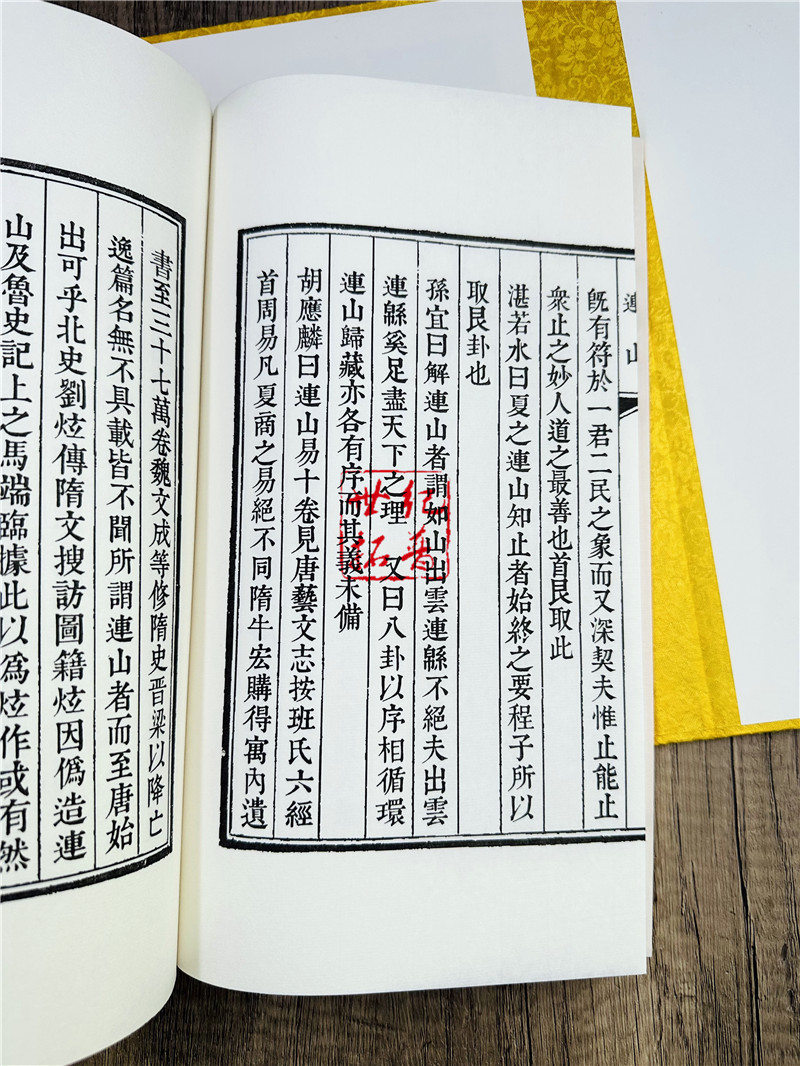 連山
既有符於一君二民之象而又深契夫惟止能止
衆止之妙人道之最善也首艮取此
湛若水曰夏之連山知止者始終之要程子所以
取艮卦也
孫宜曰解連山者謂如山出雲連緜不絕夫出雲
連緜奚足盡天下之理 又曰八卦以序相循環
連山歸藏亦各有序而其義未備
胡應麟曰連山易十卷見唐藝文志按班氏六經
首周易凡夏商之易絕不同隋牛宏購得寓內遺
書至三十七萬卷魏文成等修隋史晉梁以降亡
逸篇名無不具載皆不聞所謂連山者而至唐始
出可乎北史劉炫傳隋文搜訪圖籍炫因僞造連
山及魯史記上之馬端臨據此以爲炫作或有然
世紀
拓普